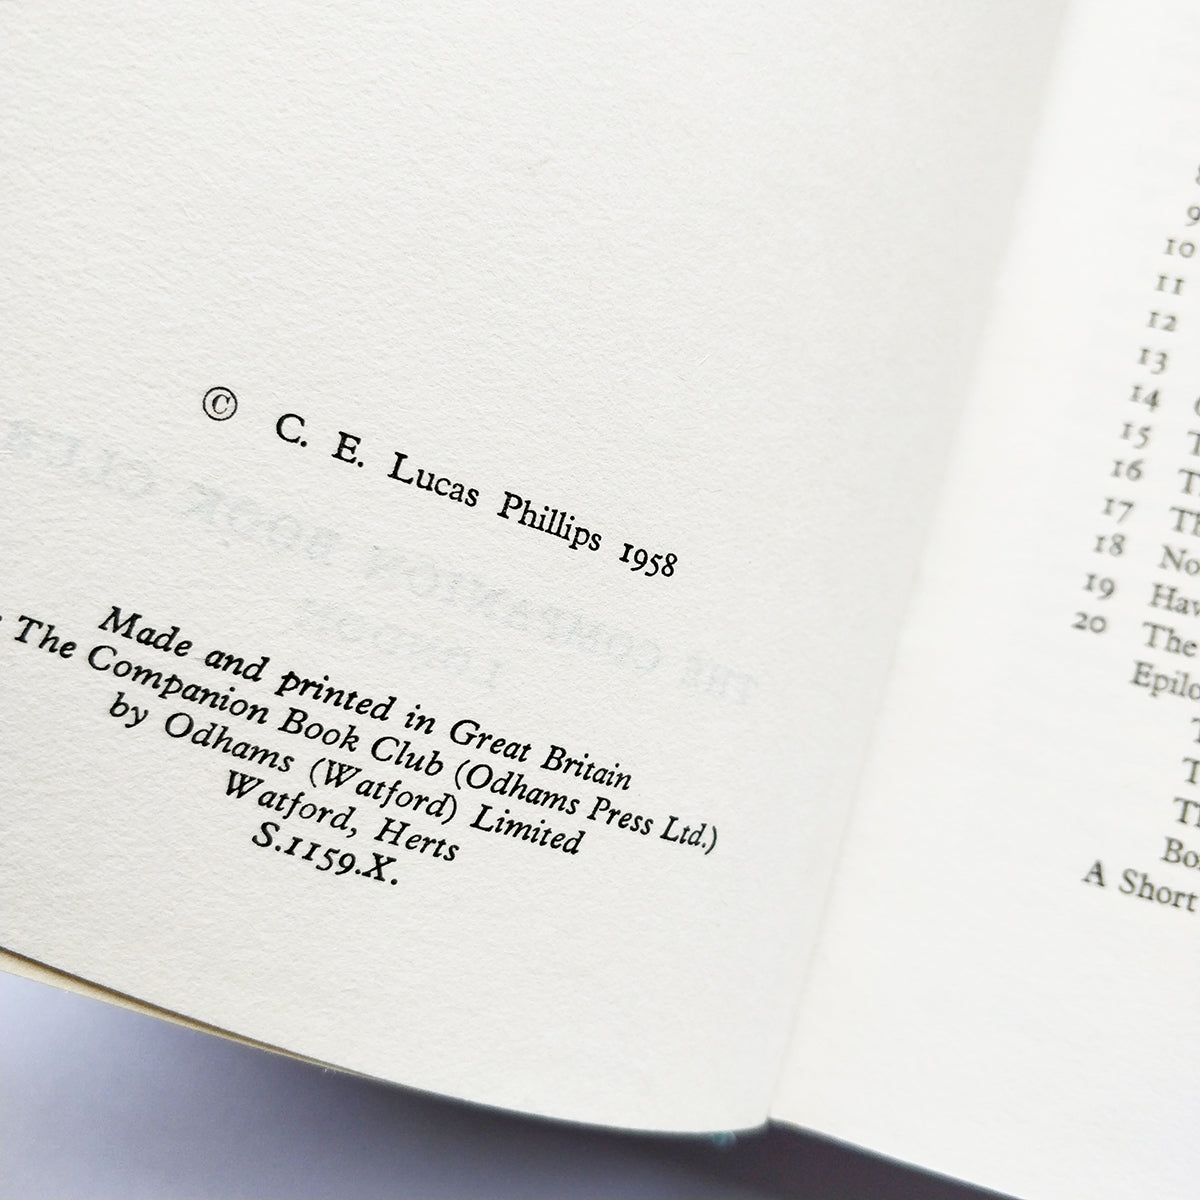 © C. E. Lucas Phillips 1958
Made and printed in Great Britain
The Companion Book Club (Odhams Press Ltd.)
by Odhams (Watford) Limited
Watford, Herts
S.1159.X.
9
10
11
12
13
14
15
16
17
18 No
19
20 The
A Short